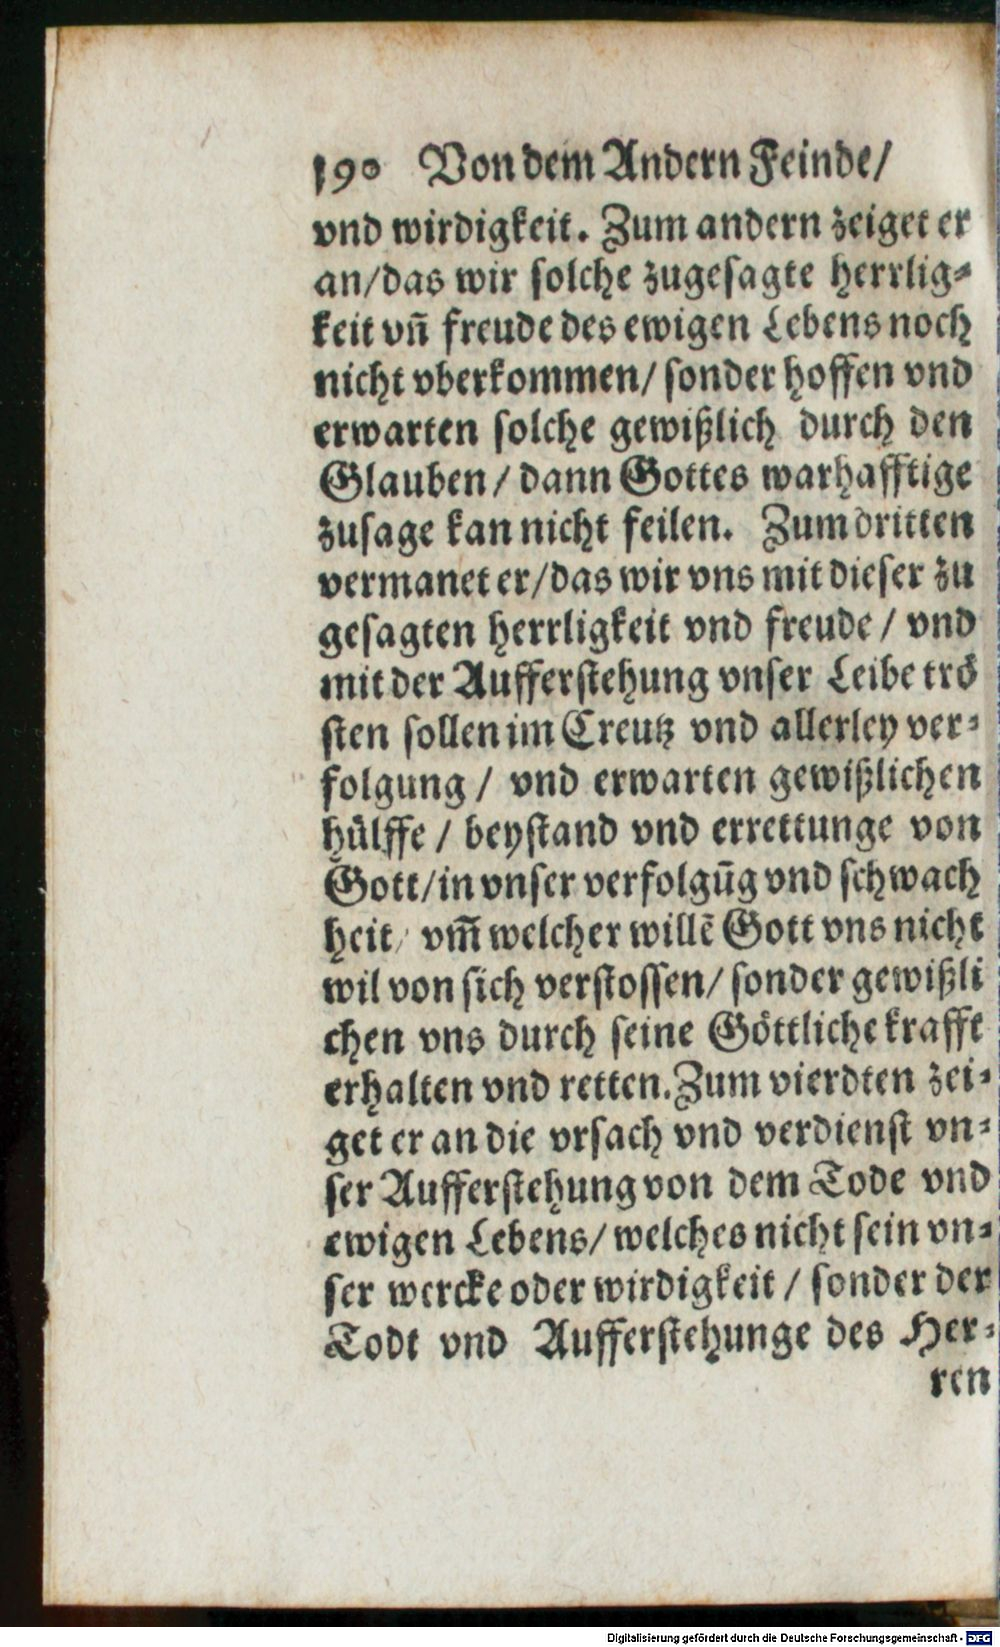 190 Von dem Andern Feinde/
vnd wirdigkeit. Zum andern zeiget er
an/das wir solche zugesagte herrlig⸗
keit vñ freude des ewigen Lebens noch
nicht vberkommen/ sonder hoffen vnd
erwarten solche gewißlich durch den
Glauben / dann Gottes warhafftige
zusage kan nicht feilen. Zum dritten
vermanet er/das wir vns mit dieser zu
gesagten herrligkeit vnd freude / vnd
mit der Aufferstehung vnser Leibe trö
sten sollen im Creutz vnd allerley ver⸗
folgung / vnd erwarten gewißlichen
hülffe / beystand vnd errettunge von
Gott/in vnser verfolgũg vnd schwach
heit/ vm̃ welcher willẽ Gott vns nicht
wil von sich verstossen/ sonder gewißli
chen vns durch seine Göttliche krafft
erhalten vnd retten. Zum vierdten zei⸗
get er an die vrsach vnd verdienst vn⸗
ser Aufferstehung von dem Tode vnd
ewigen Lebens/ welches nicht sein vn⸗
ser wercke oder wirdigkeit / sonder der
Todt vnd Aufferstehunge des Her⸗
ren
Digitalisierung gefördert durch die Deutsche Forschungsgemeinschaft - DFG